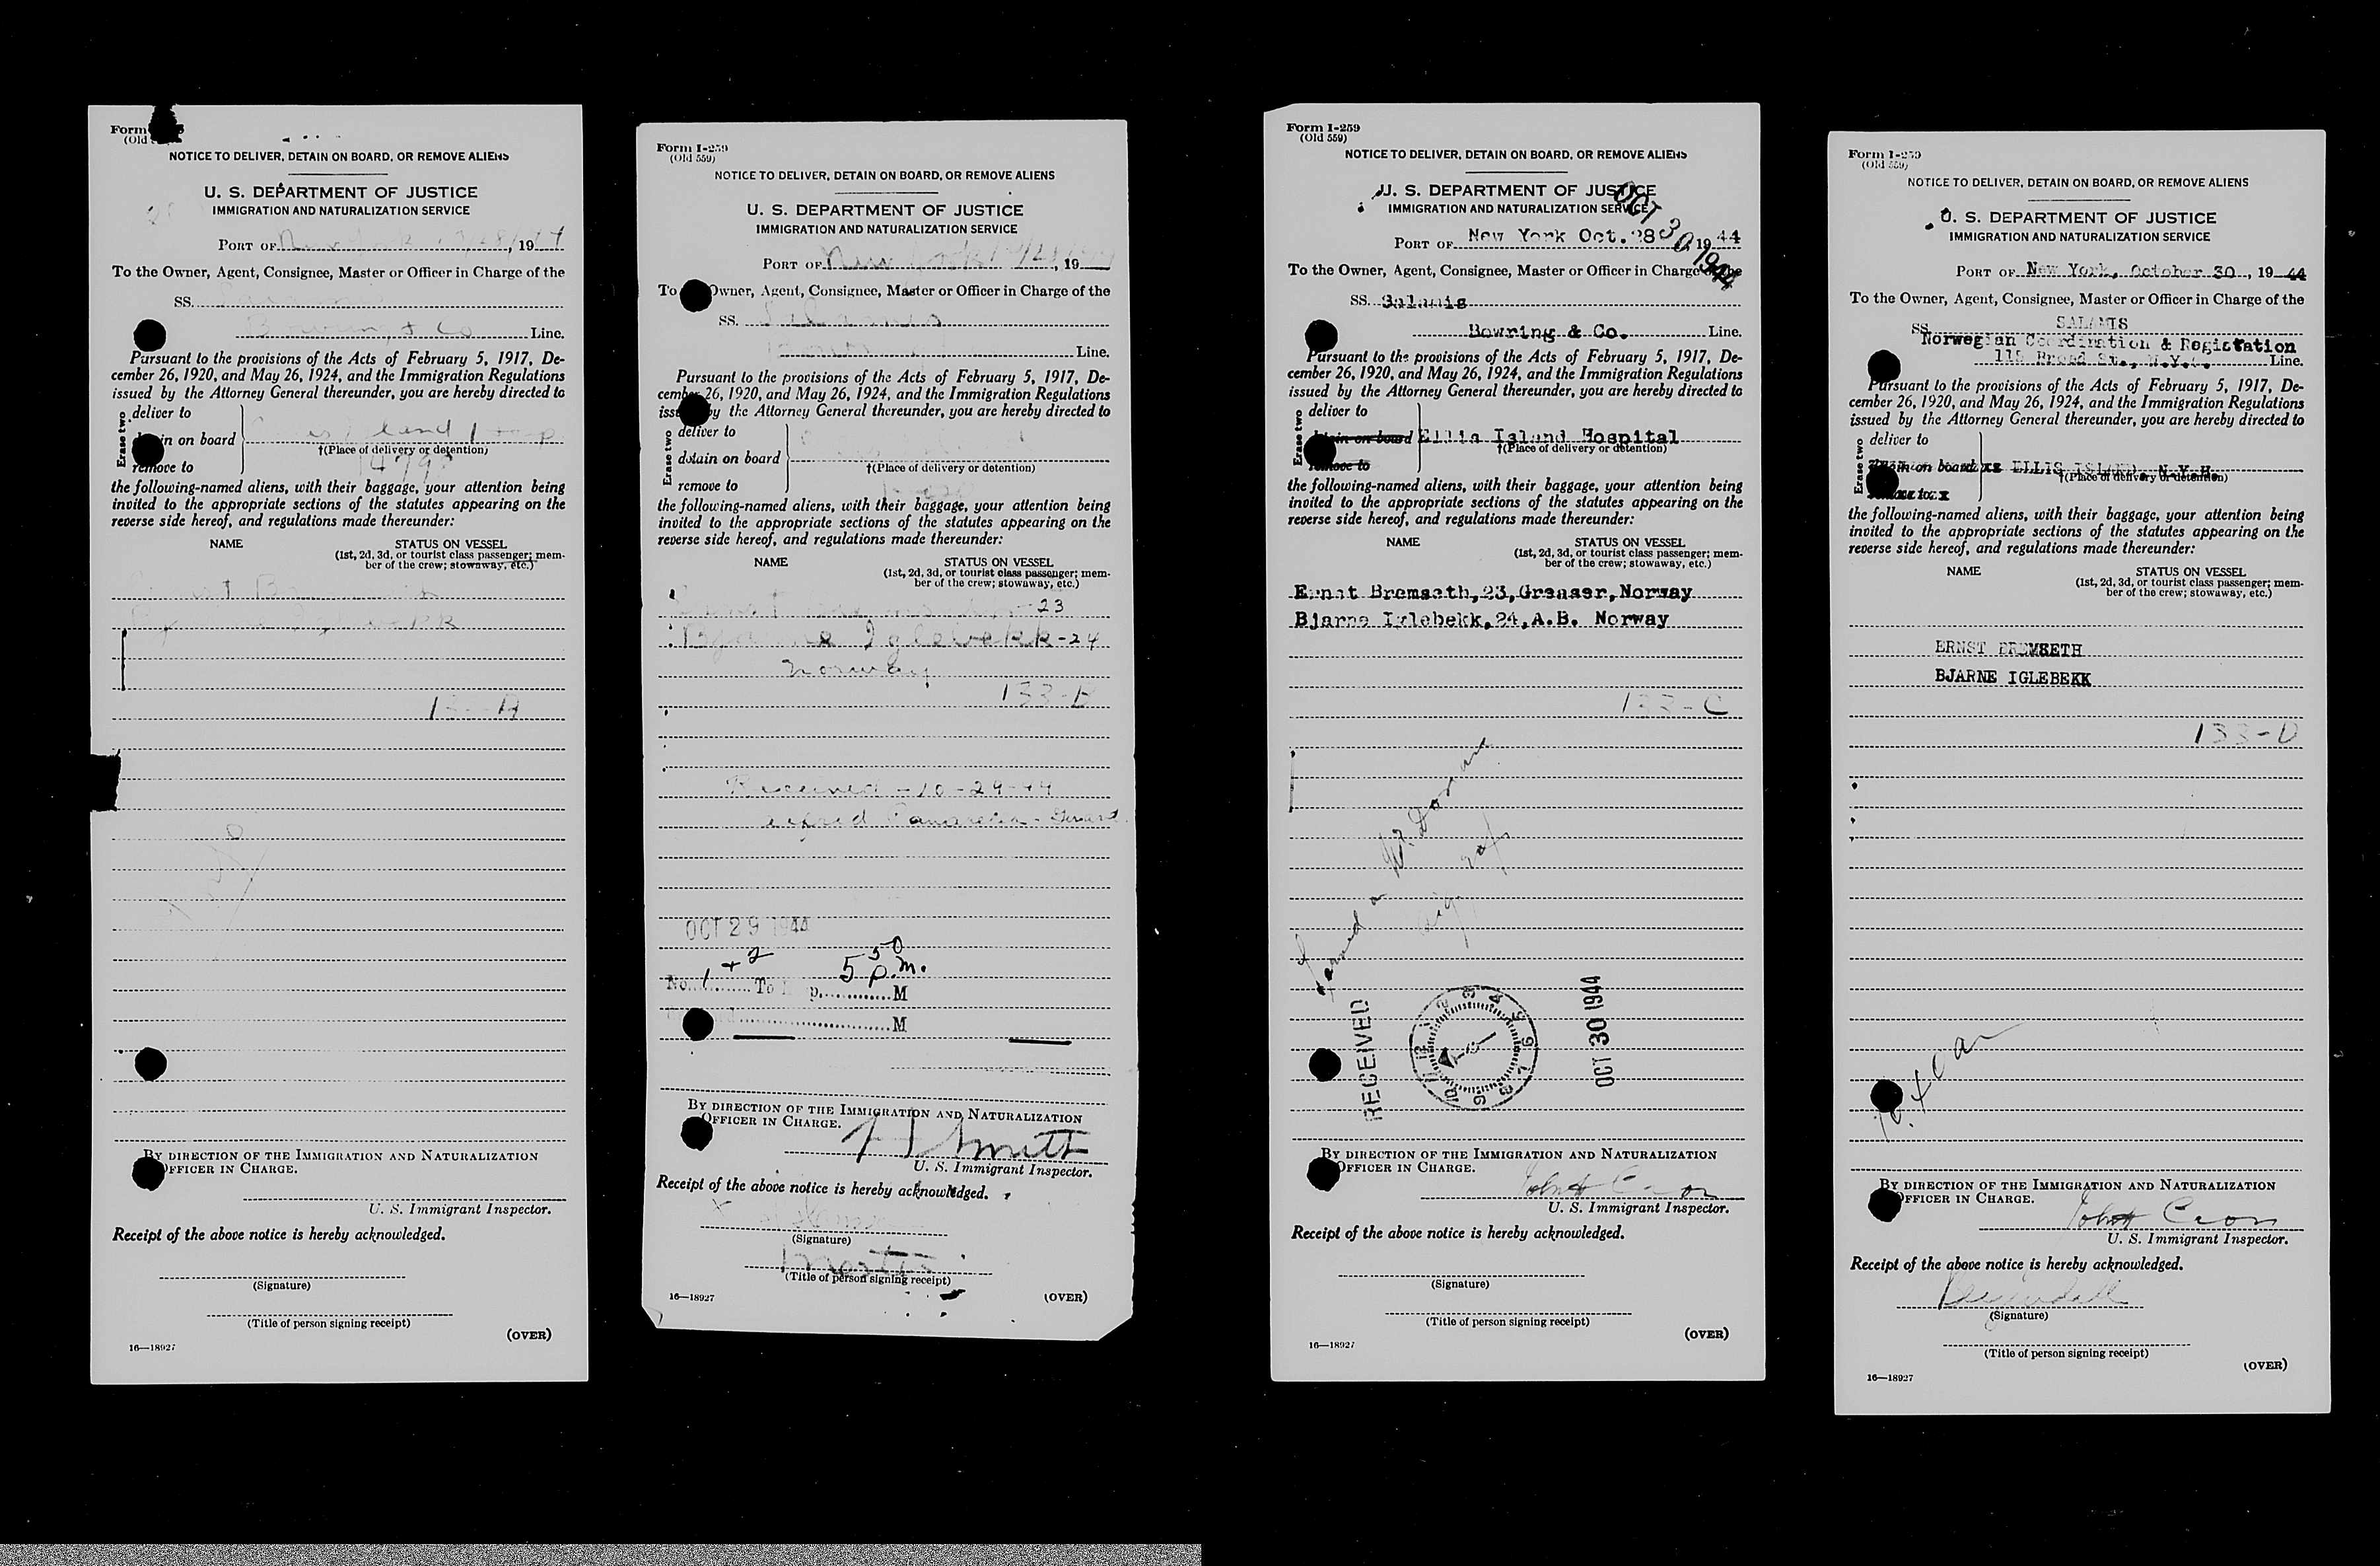 Form
(Old
NOTICE TO DELIVER, DETAIN ON BOARD, OR REMOVE ALIENS
U. S. DEPARTMENT OF JUSTICE
IMMIGRATION AND NATURALIZATION SERVICE
PORT OF New York 19 44
To the Owner, Agent, Consignee, Master or Officer in Charge of the
SS.
Bowring & Co Line.
Pursuant to the provisions of the Acts of February 5, 1917, De-
cember 26, 1920, and May 26, 1924, and the Immigration Regulations
issued by the Attorney General thereunder, you are hereby directed to
Erase two
deliver to
in on board
†(Place of delivery or detention)
remove to
the following-named aliens, with their baggage, your attention being
invited to the appropriate sections of the statutes appearing on the
reverse side hereof, and regulations made thereunder:
NAME STATUS ON VESSEL
(1st, 2d, 3d, or tourist class passenger; mem-
ber of the crew; stowaway, etc.)
BY DIRECTION OF THE IMMIGRATION AND NATURALIZATION
OFFICER IN CHARGE.
U. S. Immigrant Inspector.
Receipt of the above notice is hereby acknowledged.
(Signature)
(Title of person signing receipt)
(OVER)
16—18927
Form I-259
(Old 559)
NOTICE TO DELIVER, DETAIN ON BOARD, OR REMOVE ALIENS
U. S. DEPARTMENT OF JUSTICE
IMMIGRATION AND NATURALIZATION SERVICE
PORT OF New York , 19
To Owner, Agent, Consignee, Master or Officer in Charge of the
SS. Salamis
Line.
Pursuant to the provisions of the Acts of February 5, 1917, De-
cember 26, 1920, and May 26, 1924, and the Immigration Regulations
issued by the Attorney General thereunder, you are hereby directed to
Erase two
deliver to
detain on board
†(Place of delivery or detention)
remove to
the following-named aliens, with their baggage, your attention being
invited to the appropriate sections of the statutes appearing on the
reverse side hereof, and regulations made thereunder:
NAME STATUS ON VESSEL
(1st, 2d, 3d, or tourist class passenger; mem-
ber of the crew; stowaway, etc.)
-23
Bjarne Iglebekk-24
Norway
133-B
Received -10-29-44
Alfred
OCT 29 1944
No. 1 + 2 To 5 50 p.m. M
M
BY DIRECTION OF THE IMMIGRATION AND NATURALIZATION
OFFICER IN CHARGE.
Smith
U. S. Immigrant Inspector.
Receipt of the above notice is hereby acknowledged.
(Signature)
Master
(Title of person signing receipt)
16—18927 (OVER)
Form I-259
(Old 559)
NOTICE TO DELIVER, DETAIN ON BOARD, OR REMOVE ALIENS
U. S. DEPARTMENT OF JUSTICE
IMMIGRATION AND NATURALIZATION SERVICE
OCT 30 1944
PORT OF New York Oct. 28 19 44
To the Owner, Agent, Consignee, Master or Officer in Charge of the
SS. Salamis
Bowring & Co. Line.
Pursuant to the provisions of the Acts of February 5, 1917, De-
cember 26, 1920, and May 26, 1924, and the Immigration Regulations
issued by the Attorney General thereunder, you are hereby directed to
Erase two
deliver to
detain on board Ellis Island Hospital
†(Place of delivery or detention)
remove to
the following-named aliens, with their baggage, your attention being
invited to the appropriate sections of the statutes appearing on the
reverse side hereof, and regulations made thereunder:
NAME STATUS ON VESSEL
(1st, 2d, 3d, or tourist class passenger; mem-
ber of the crew; stowaway, etc.)
Ernst Bremseth,23,Greaser,Norway
Bjarne Iglebekk,24,A.B. Norway
133-C
RECEIVED
OCT 30 1944
BY DIRECTION OF THE IMMIGRATION AND NATURALIZATION
OFFICER IN CHARGE.
John Cron
U. S. Immigrant Inspector.
Receipt of the above notice is hereby acknowledged.
(Signature)
(Title of person signing receipt)
(OVER)
16—18927
Form I-259
(Old 559)
NOTICE TO DELIVER, DETAIN ON BOARD, OR REMOVE ALIENS
U. S. DEPARTMENT OF JUSTICE
IMMIGRATION AND NATURALIZATION SERVICE
PORT OF New York, October 30 , 19 44
To the Owner, Agent, Consignee, Master or Officer in Charge of the
SS. SALAMIS
Norwegian Coordination & Registation
Broad St., N.Y.C. Line.
Pursuant to the provisions of the Acts of February 5, 1917, De-
cember 26, 1920, and May 26, 1924, and the Immigration Regulations
issued by the Attorney General thereunder, you are hereby directed to
Erase two
deliver to
detain on board ELLIS ISLAND, N.Y.H.
†(Place of delivery or detention)
the following-named aliens, with their baggage, your attention being
invited to the appropriate sections of the statutes appearing on the
reverse side hereof, and regulations made thereunder:
NAME STATUS ON VESSEL
(1st, 2d, 3d, or tourist class passenger; mem-
ber of the crew; stowaway, etc.)
ERNST BREMSETH
BJARNE IGLEBEKK
133-D
BY DIRECTION OF THE IMMIGRATION AND NATURALIZATION
OFFICER IN CHARGE.
John Cron
U. S. Immigrant Inspector.
Receipt of the above notice is hereby acknowledged.
(Signature)
(Title of person signing receipt)
(OVER)
16—18927